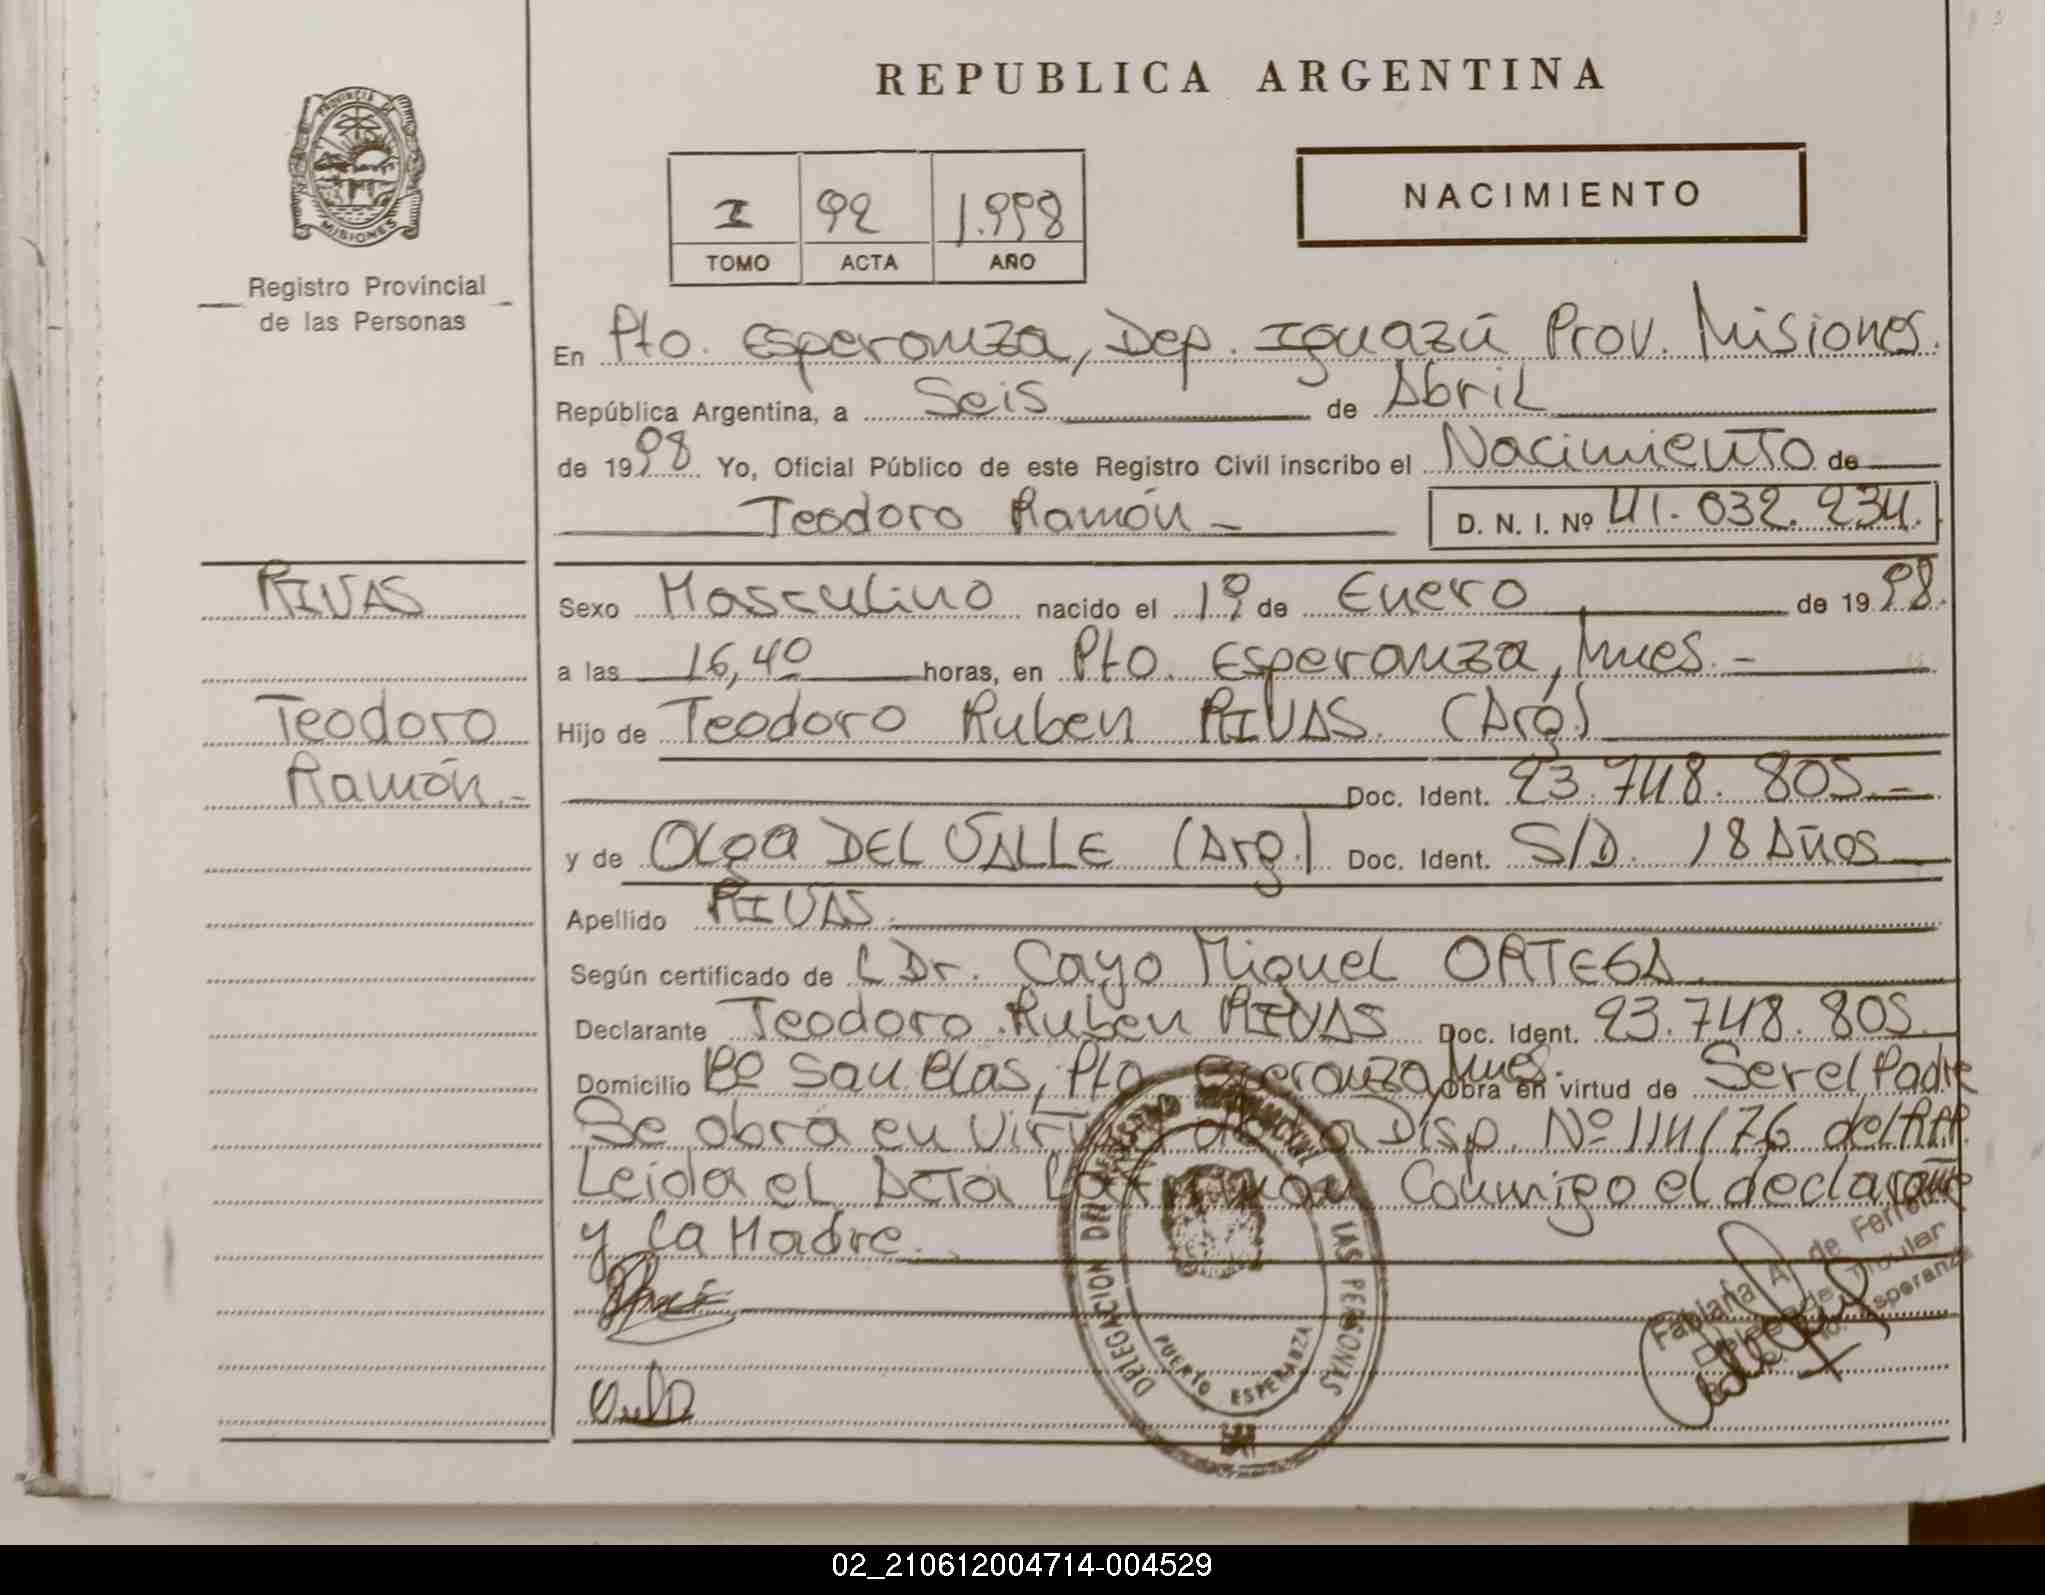 REPUBLICA ARGENTINA
PROVINCIA DE
MISIONES
Registro Provincial
de las Personas
NACIMIENTO
I 92 1.998
TOMO ACTA AÑO
En Pto. Esperanza, Dep. Iguazú Prov. Misiones.
República Argentina, a Seis de Abril
de 1998 Yo, Oficial Público de este Registro Civil inscribo el Nacimiento de
Teodoro Ramón - D. N. I. Nº 41.032.234.
RIVAS
Sexo Masculino nacido el 1º de Enero de 1998.
a las 16,40 horas, en Pto. Esperanza, Mnes. -
Teodoro
Hijo de Teodoro Ruben RIVAS. (Arg.)
Ramón.-
Doc. Ident. 23.748.805.-
y de Olga DEL VALLE (Arg.) Doc. Ident. S/D. 18 Años
Apellido RIVAS.
Según certificado de L Dr. Cayo Miguel ORTEGA
Declarante Teodoro Ruben RIVAS Doc. Ident. 23.748.805.
Domicilio Bº San Blas, Pto. Esperanza, Mnes. Obra en virtud de Ser el Padre
Se obra en Disp. Nº 114/76 del
Leida el Acta Conmigo el declarante
y la Madre.
DELEGACION DEL REGISTRO PROVINCIAL DE LAS PERSONAS
PUERTO ESPERANZA
Fabiana A. de Ferreira
Delegada Titular
Pto. Esperanza
02_210612004714-004529